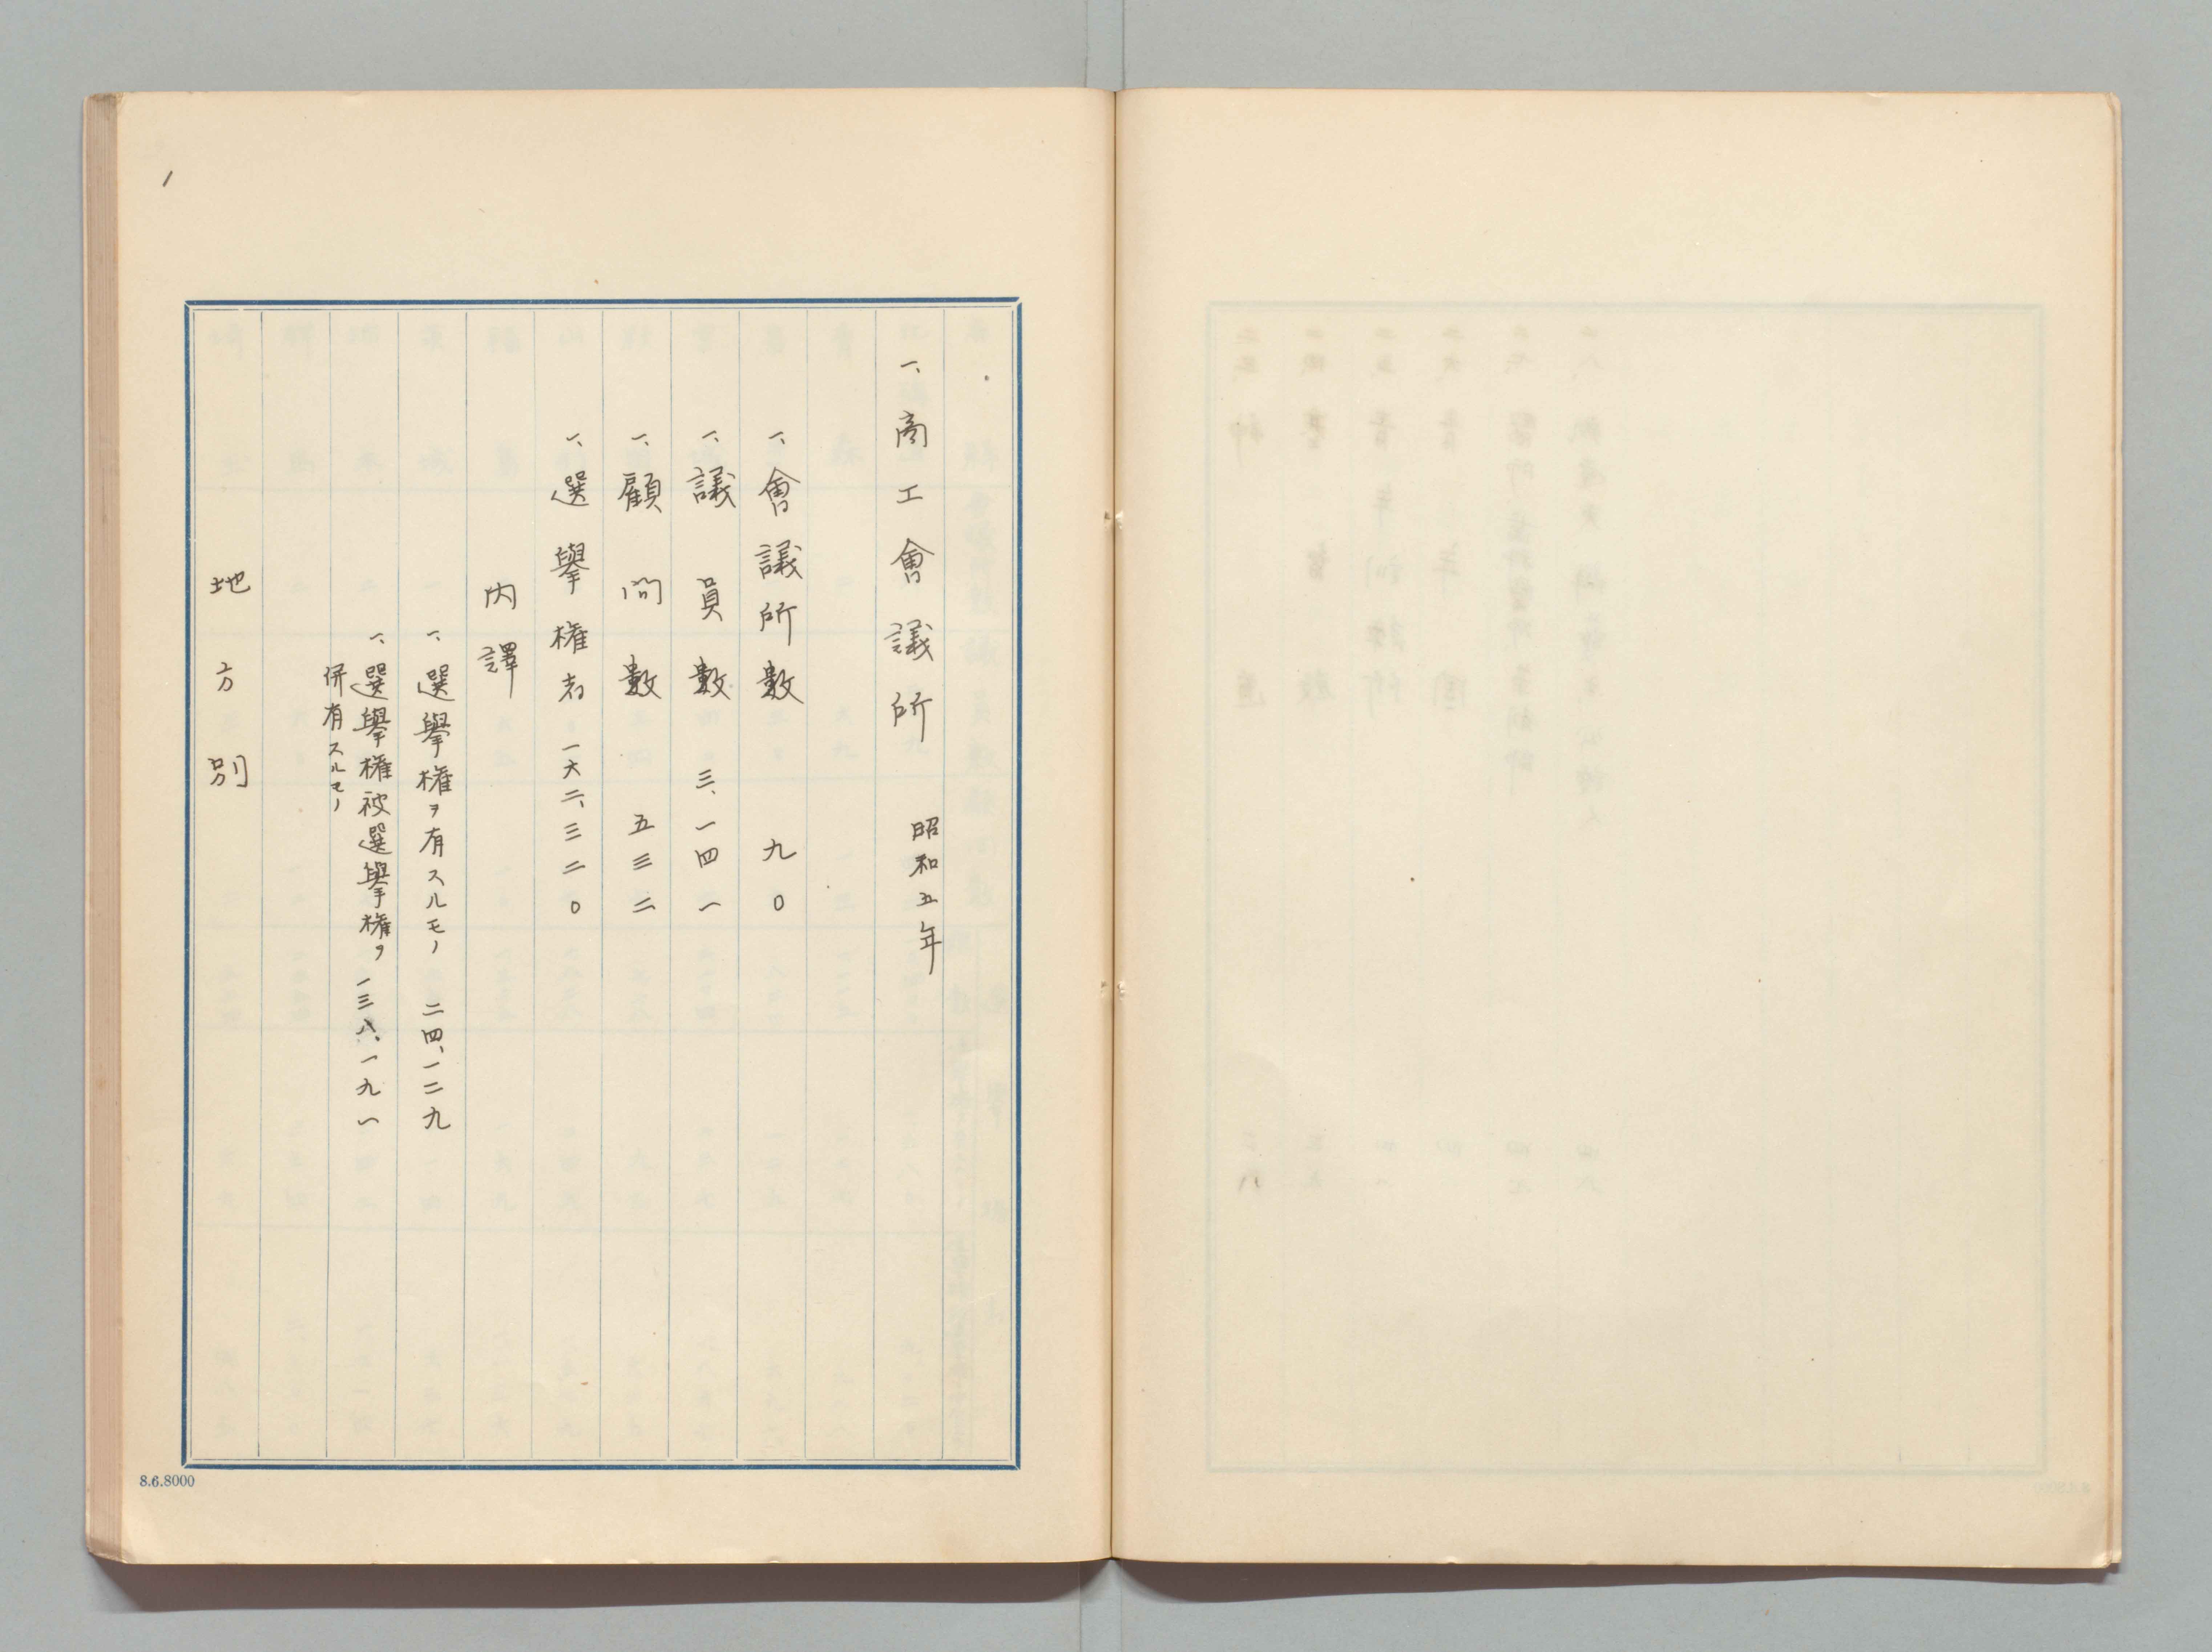 一、商工會議所 昭和五年
一、會議所數 九〇
一、議員數 三、一四一
一、顧問數 五三二
一、選擧權者 一六二、三二〇
内譯
一、選擧權ヲ有スルモノ 二四、一二九
一、選擧權被選擧權ヲ 一三八、一九一
併有スルモノ
地方別
1
8.6.8000